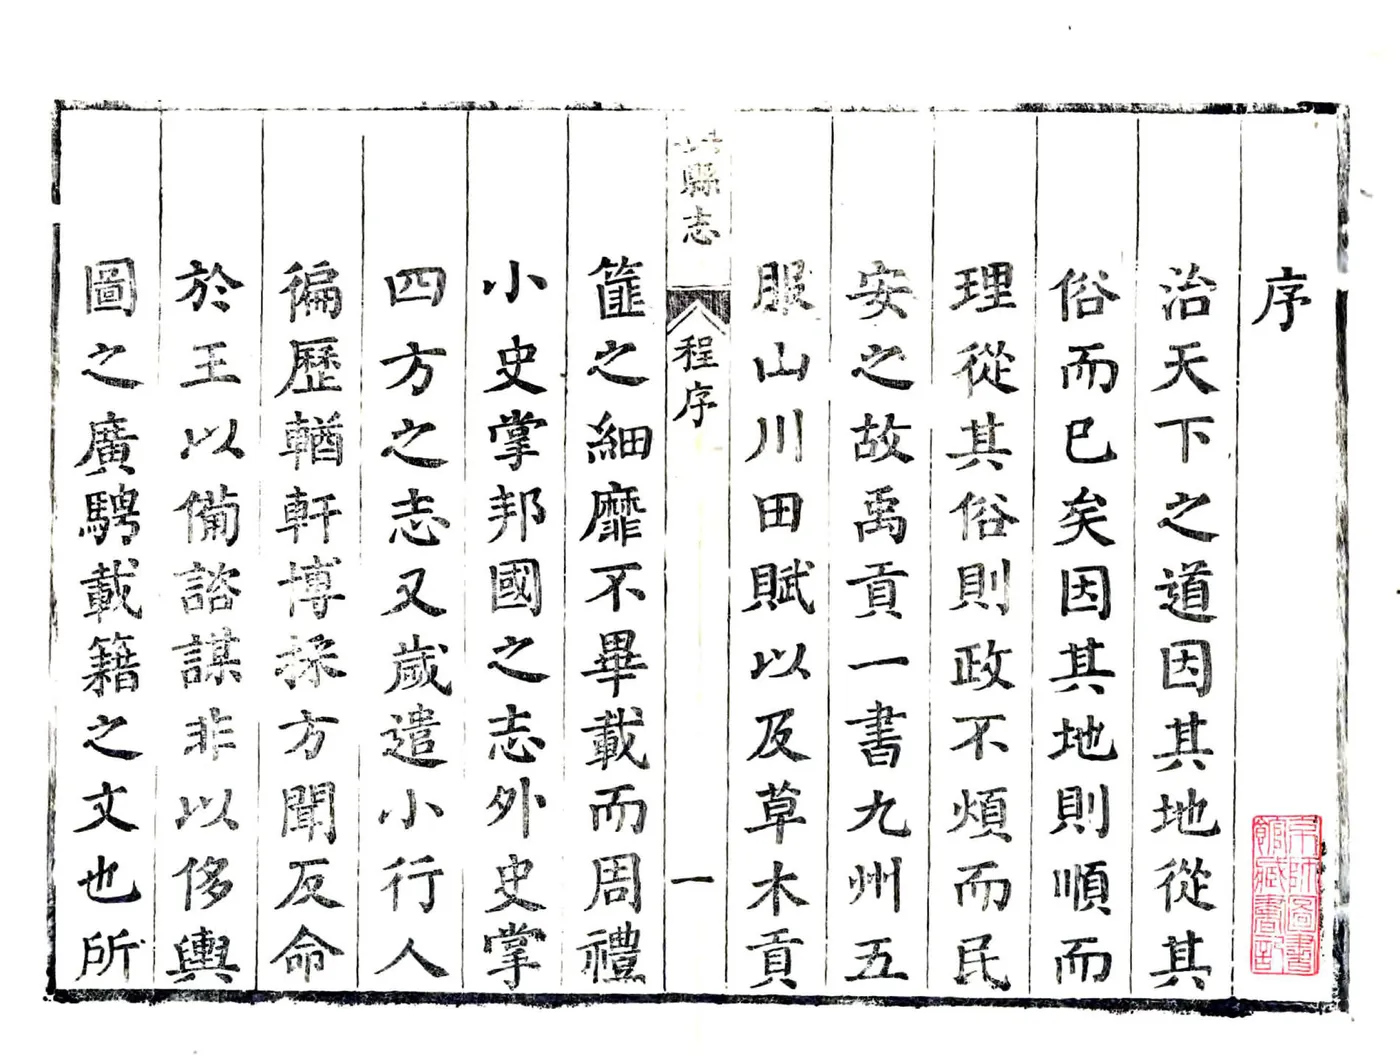 序
治天下之道因其地從其
俗而已矣因其地則順而
理從其俗則政不煩而民
安之故禹貢一書九州五
服山川田賦以及草木貢
縣志
程序
一
篚之細靡不畢載而周禮
小史掌邦國之志外史掌
四方之志又歲遣小行人
徧歷輶軒博採方聞反命
於王以備諮謀非以侈輿
圖之廣騁載籍之文也所
京師圖書
館藏書記